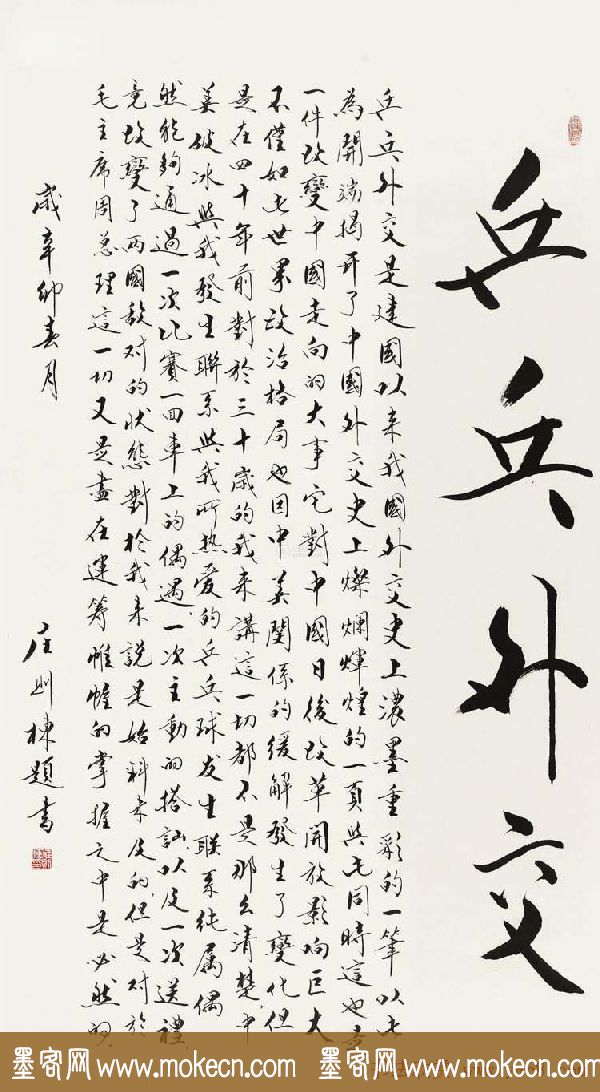 乒乓外交
乒乓外交是建國以来我國外交史上濃墨重彩的一筆以此
為開端揭开了中國外交史上燦爛輝煌的一頁与此同時這也是
一件改變中國走向的大事它對中國日後改革開放影响巨大
不僅如此世界政治格局也因中美関係的缓解發生了變化但
是在四十年前對於三十歲的我来講這一切都不是那么清楚中
美破冰与我發生聯系与我所热爱的乒乓球发生联系纯属偶
然能夠通過一次比賽一回車上的偶遇一次主動的搭訕以及一次送禮
竟改變了两國敌对的狀態對於我来說是始料未及的但是对於
毛主席周总理這一切又是盡在運筹帷幄的掌握之中是必然的
歲辛卯春月
庄则棟題書
墨客网 www.mokecn.com 墨客网 www.mokecn.com